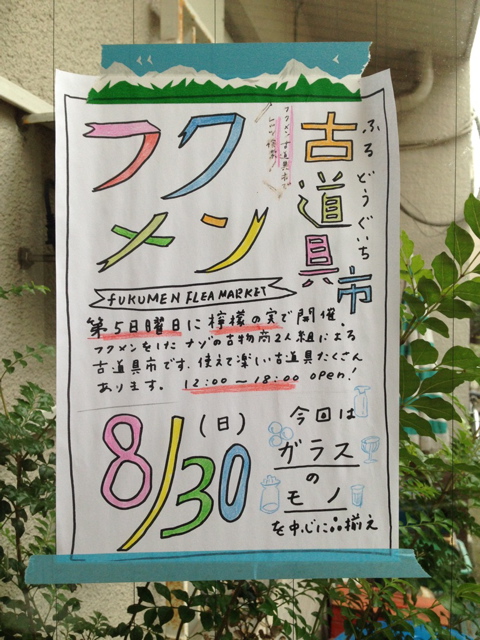 フクメン
古道具市
ふるどうぐいち
フクメン古道具市で
FUKUMEN FLEA MARKET
第5日曜日に檸檬の実で開催。
フクメンをしたナゾの古物商2人組による
古道具市です。使えて楽しい古道具たくさん
あります。 12:00〜18:00 OPEN!
8/30
(日)
今回は
ガラス
の
モノ
を中心に品揃え